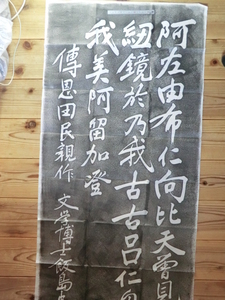 阿左由布仁向比天曽見
紐鏡於乃我古古呂仁
我美阿留加登
傳恩田民親作 文学博士飯島